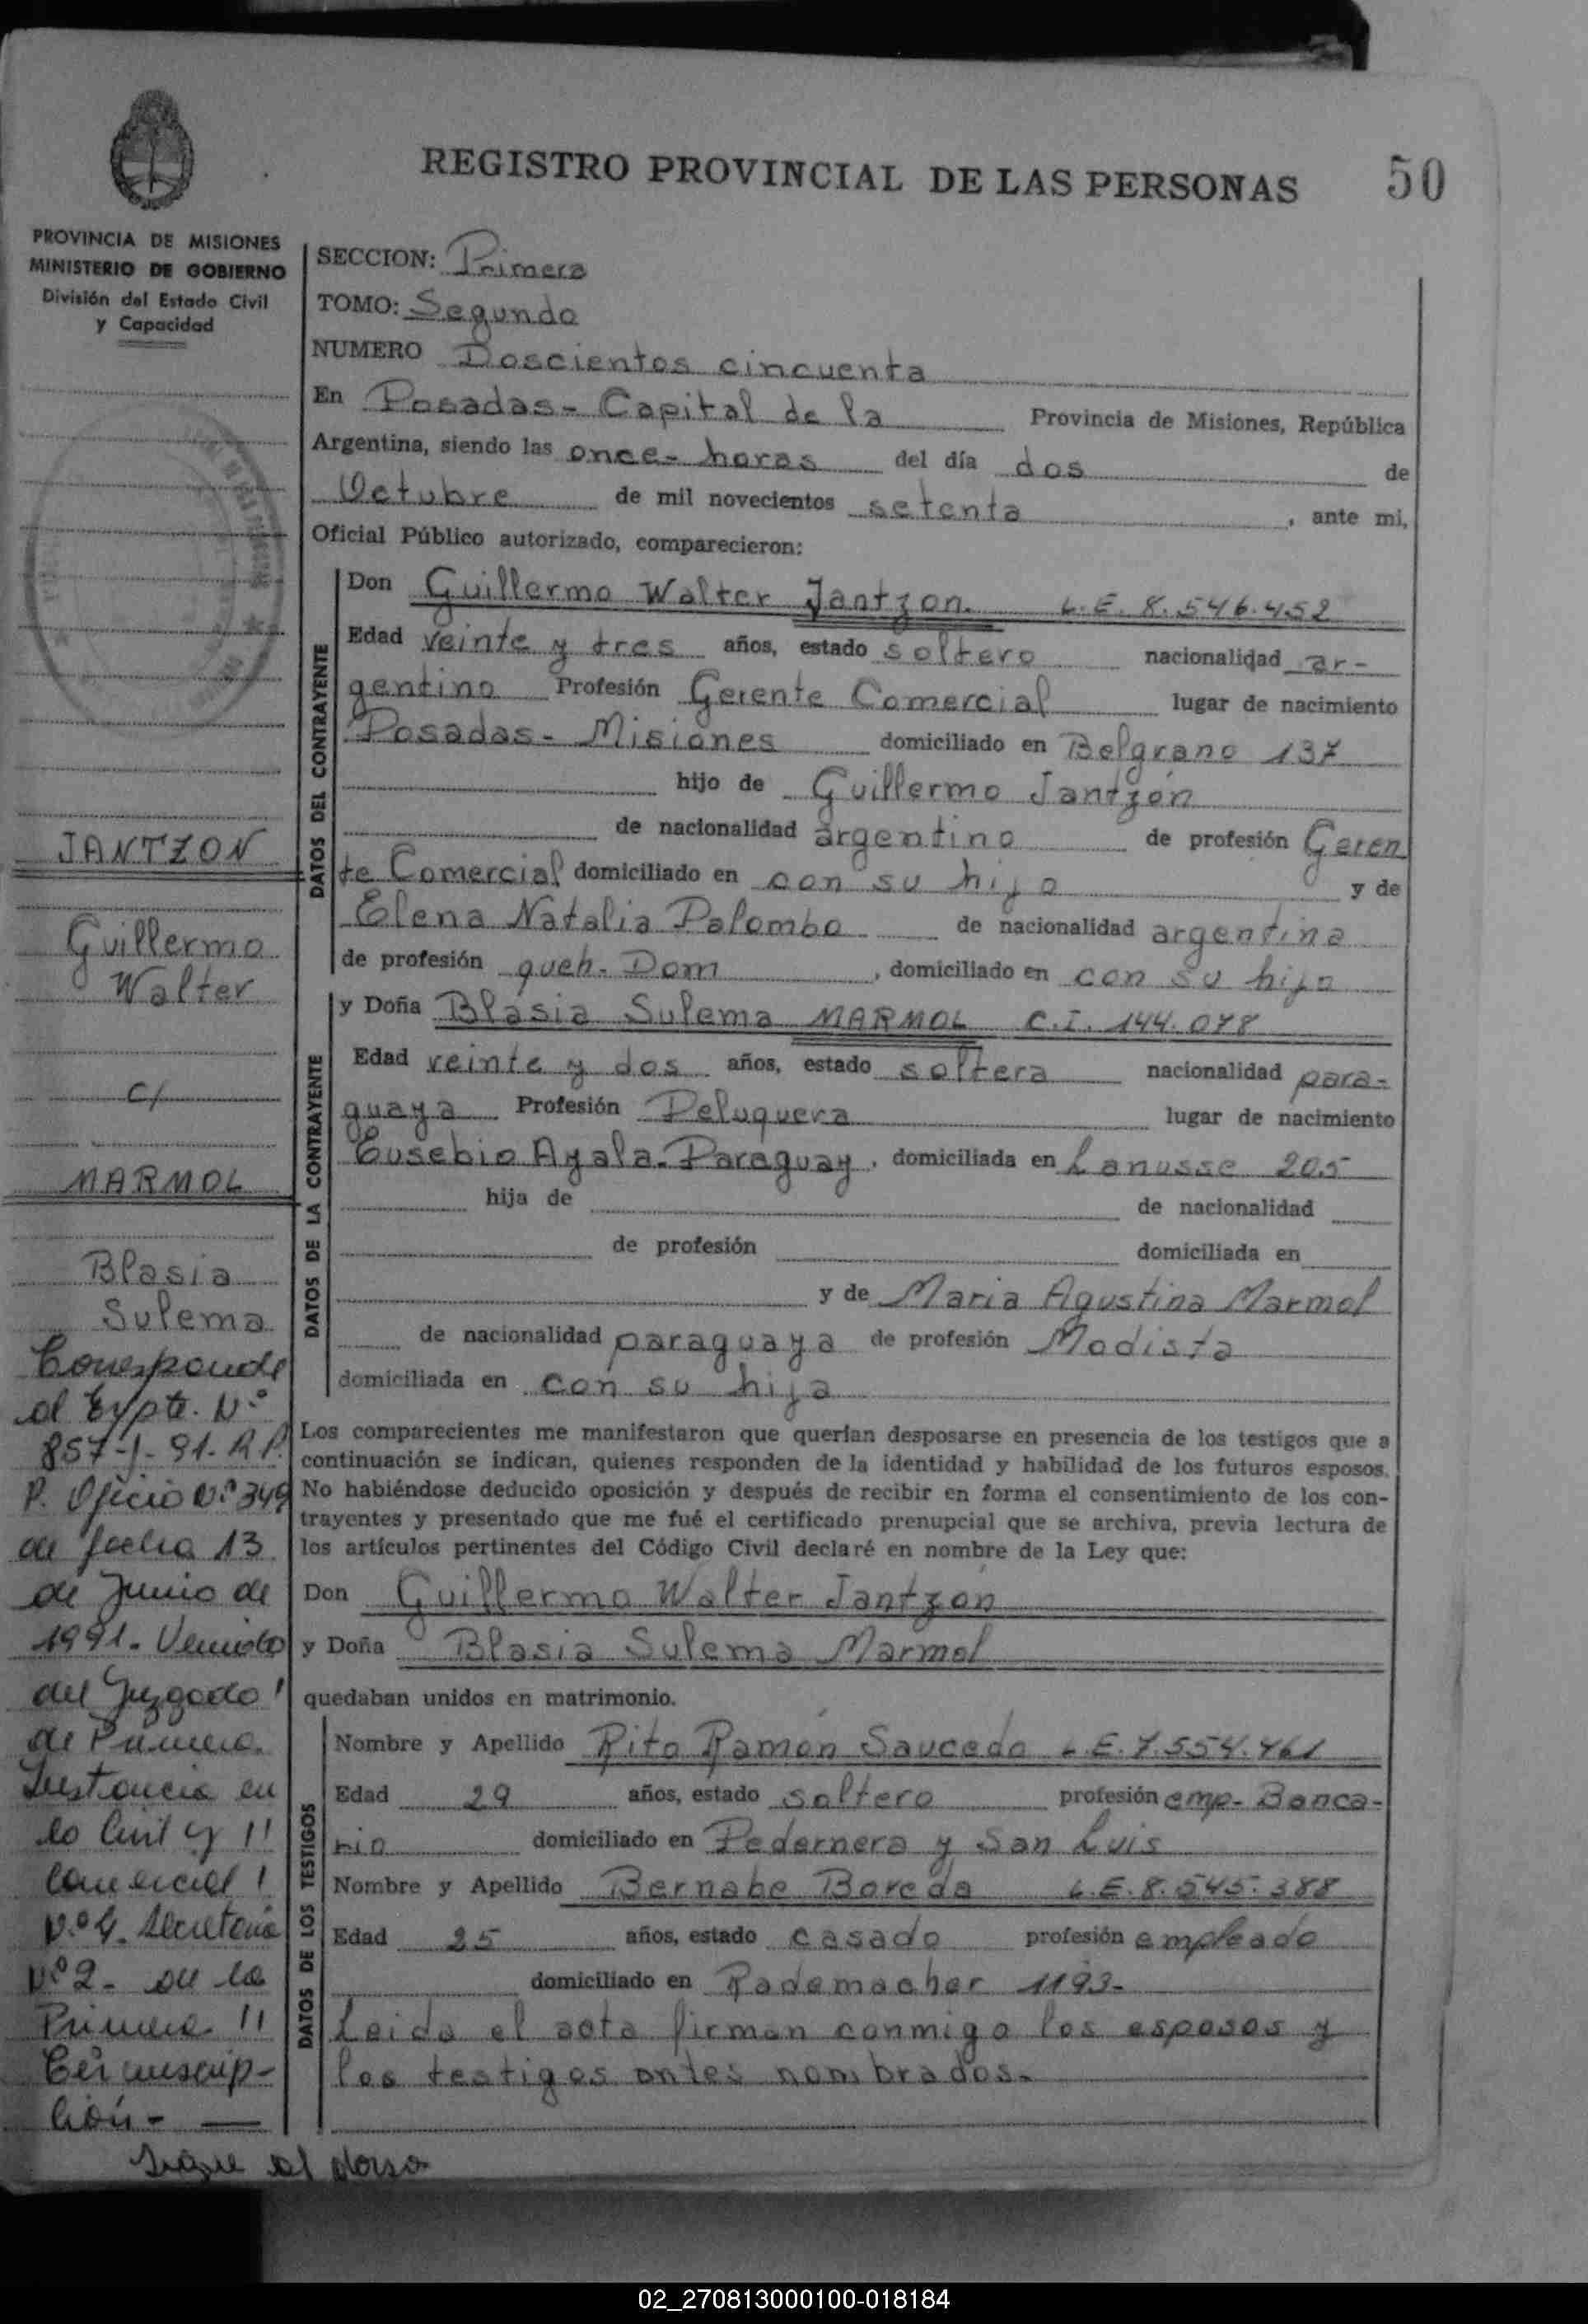 REGISTRO PROVINCIAL DE LAS PERSONAS
50
PROVINCIA DE MISIONES
MINISTERIO DE GOBIERNO
División del Estado Civil
y Capacidad
SECCION: Primera
TOMO: Segundo
NUMERO Doscientos cincuenta
En Posadas - Capital de la Provincia de Misiones, República
Argentina, siendo las once - horas del día dos de
Octubre de mil novecientos setenta, ante mi,
Oficial Público autorizado, comparecieron:
DATOS DEL CONTRAYENTE
Don Guillermo Walter Jantzon. L.E. 8.546.452
Edad veinte y tres años, estado soltero nacionalidad ar-
gentino Profesión Gerente Comercial lugar de nacimiento
Posadas - Misiones domiciliado en Belgrano 137
hijo de Guillermo Jantzón
de nacionalidad argentino de profesión Geren
te Comercial domiciliado en con su hijo y de
Elena Natalia Palombo de nacionalidad argentina
de profesión queh. Dom, domiciliado en con su hijo
DATOS DE LA CONTRAYENTE
y Doña Blasia Sulema MARMOL C.I. 144.078
Edad veinte y dos años, estado soltera nacionalidad para-
guaya Profesión Peluquera lugar de nacimiento
Eusebio Ayala - Paraguay, domiciliada en Lanusse 205
hija de de nacionalidad
de profesión domiciliada en
y de Maria Agustina Marmol
de nacionalidad paraguaya de profesión Modista
domiciliada en con su hija
Los comparecientes me manifestaron que querían desposarse en presencia de los testigos que a
continuación se indican, quienes responden de la identidad y habilidad de los futuros esposos.
No habiéndose deducido oposición y después de recibir en forma el consentimiento de los con-
trayentes y presentado que me fué el certificado prenupcial que se archiva, previa lectura de
los artículos pertinentes del Código Civil declaré en nombre de la Ley que:
Don Guillermo Walter Jantzón
y Doña Blasia Sulema Marmol
quedaban unidos en matrimonio.
DATOS DE LOS TESTIGOS
Nombre y Apellido Rito Ramón Saucedo L.E. 7.554.461
Edad 29 años, estado soltero profesión emp. Banca-
rio domiciliado en Pedernera y San Luis
Nombre y Apellido Bernabe Boveda L.E. 8.545.388
Edad 25 años, estado casado profesión empleado
domiciliado en Rademacher 1193-
Leida el acta firman conmigo los esposos y
los testigos antes nombrados.
JANTZON
Guillermo
Walter
C/
MARMOL
Blasia
Sulema
Corresponde
al Expte. Nº
857-J-91-R.P.
P. Oficio Nº 349
de fecha 13
de Junio de
1991 - Venido
del Juzgado
de Primera
Instancia en
lo Civil y
Comercial
Nº 4. Secretaria
Nº 2 - de la
Primera
Circunscrip-
ción -
Sigue al dorso
02_270813000100-018184